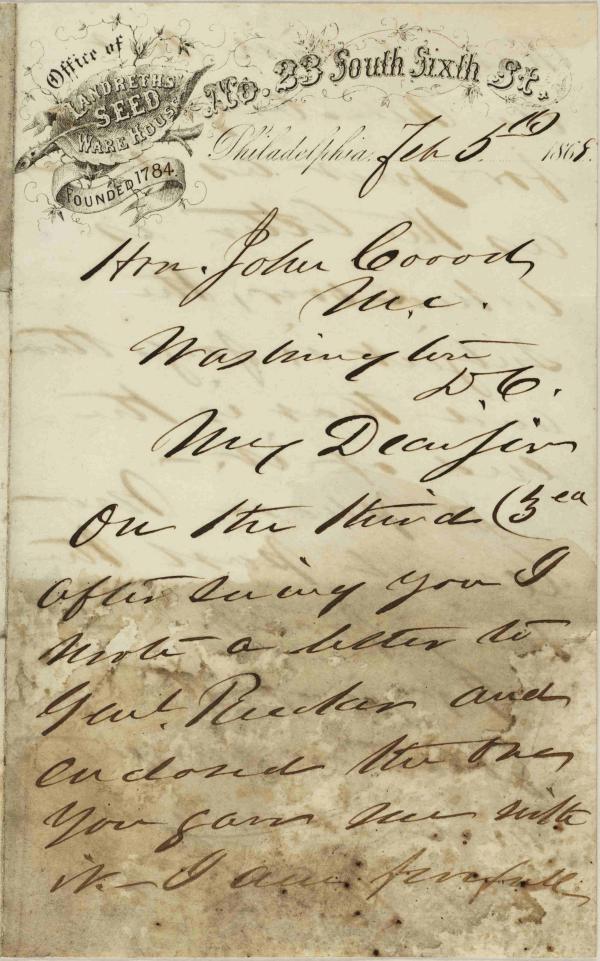 Office of
LANDRETHS'
SEED
WAREHOUSE
FOUNDED 1784.
No. 23 South Sixth St.
Philadelphia, Feb 5th 186
Hon. John Covode
M.C.
Washington
D.C.
My Dear Sir
On the third (3
after seeing you I
wrote a letter to
Genl. Rucker and
enclosed the one
you gave me with
it - I am